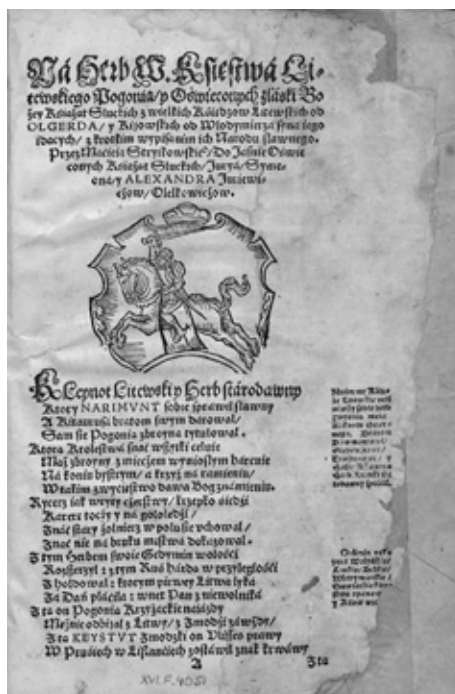 Ná Herb W. Księstwá Li-
tewskiego Pogonia/ y Oświeconych z łáski Bo
żey Książąt Słuckich z wielkich Xiędzow Litewskich od
OLGERDA/ y Kijowskich od Włodymierza syna iego
idących/ z krotkim wypisánim ich Narodu sławnego.
Przez Macieiá Strykowskie°/ Do Jaśnie Oświe
conych Książąt Słuckich/ Jurgá/ Syme-
oná/ y ALEXANDRA Juriewi-
czow/ Olelkowiczow.
KLeynot Litewski y Herb stárodawny
Ktory NARIMUNT sobie spráwił sławny
A Kitaurusá brátom swym dárował/
Sam się Pogonią zbroyną tytułował.
Ktora Krolestwá snać wszytki celuie
Mąż zbroyny z mieczem wyniosłym hárcuie
Ná koniu bystrym/ á krzyż ná rámieniu/
W tákim zwycięstwo dawa Bog známieniu.
Rycerz iák wryty czerstwy/ krzepko siedzi
Kárere toczy y ná gołoledzi/
Znać stáry żołnierz w polu się vchował/
Znać nie ná bruku męstwá dokázował.
Z tym Herbem swoie Gedymin włości
Rozszerzył: z tym Ruś hárda w przyległości
Zhołdował: ktorym pirwey Litwá łyká
Zá Dań płáciłá: wnet Pan z niewolniká
Z tą on Pogonią Krzyżáckie náiázdy
Mężnie odbijał z Litwy/ z Zmodzi záwżdy/
Z tą KEYSTUT Zmodzki on Vlisses práwy
W Prusiech w Liflánciech zostáwił znák krwáwy
A
Z tą
XVI.F.4051